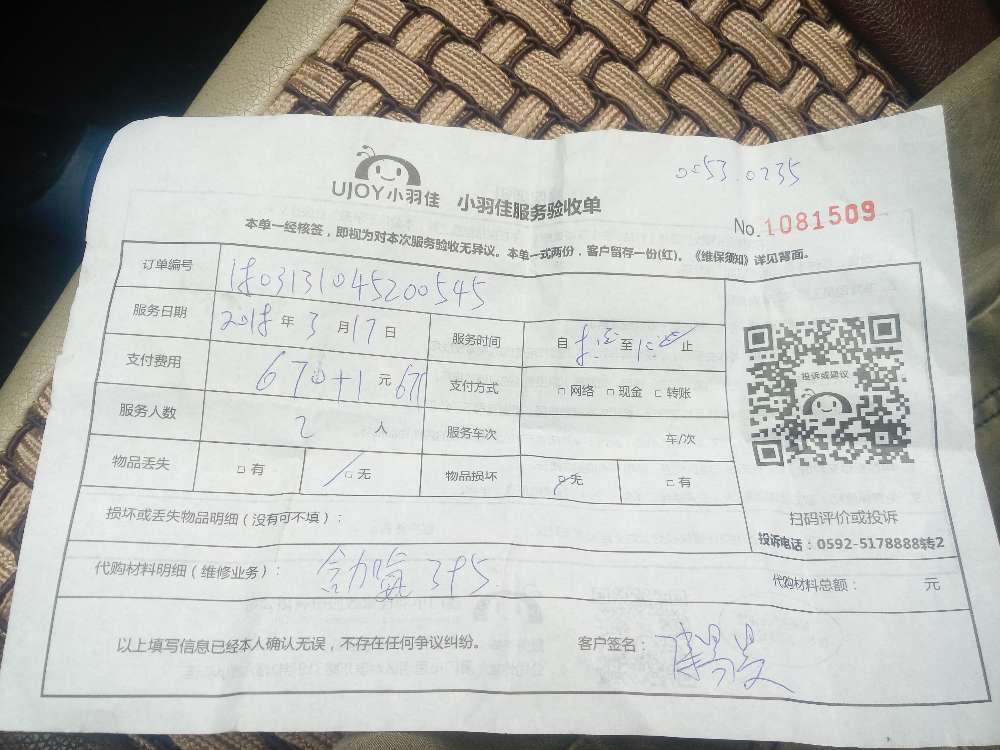 0053.0235
UJOY小羽佳 小羽佳服务验收单
No.1081509
本单一经核签，即视为对本次服务验收无异议。本单一式两份，客户留存一份(红)。《维保须知》详见背面。
订单编号 1803131045200545
服务日期 2018 年 3 月 17 日 服务时间 自 至 止
支付费用 670+1 元 671 支付方式 □ 网络 □ 现金 □ 转账
服务人数 2 人 服务车次 车/次
物品丢失 □ 有 □ 无 物品损坏 □ 无 □ 有
投诉或建议
扫码评价或投诉
投诉电话：0592-5178888转2
损坏或丢失物品明细（没有可不填）：
代购材料明细（维修业务）： 含加氟 395 代购材料总额： 元
以上填写信息已经本人确认无误，不存在任何争议纠纷。 客户签名：